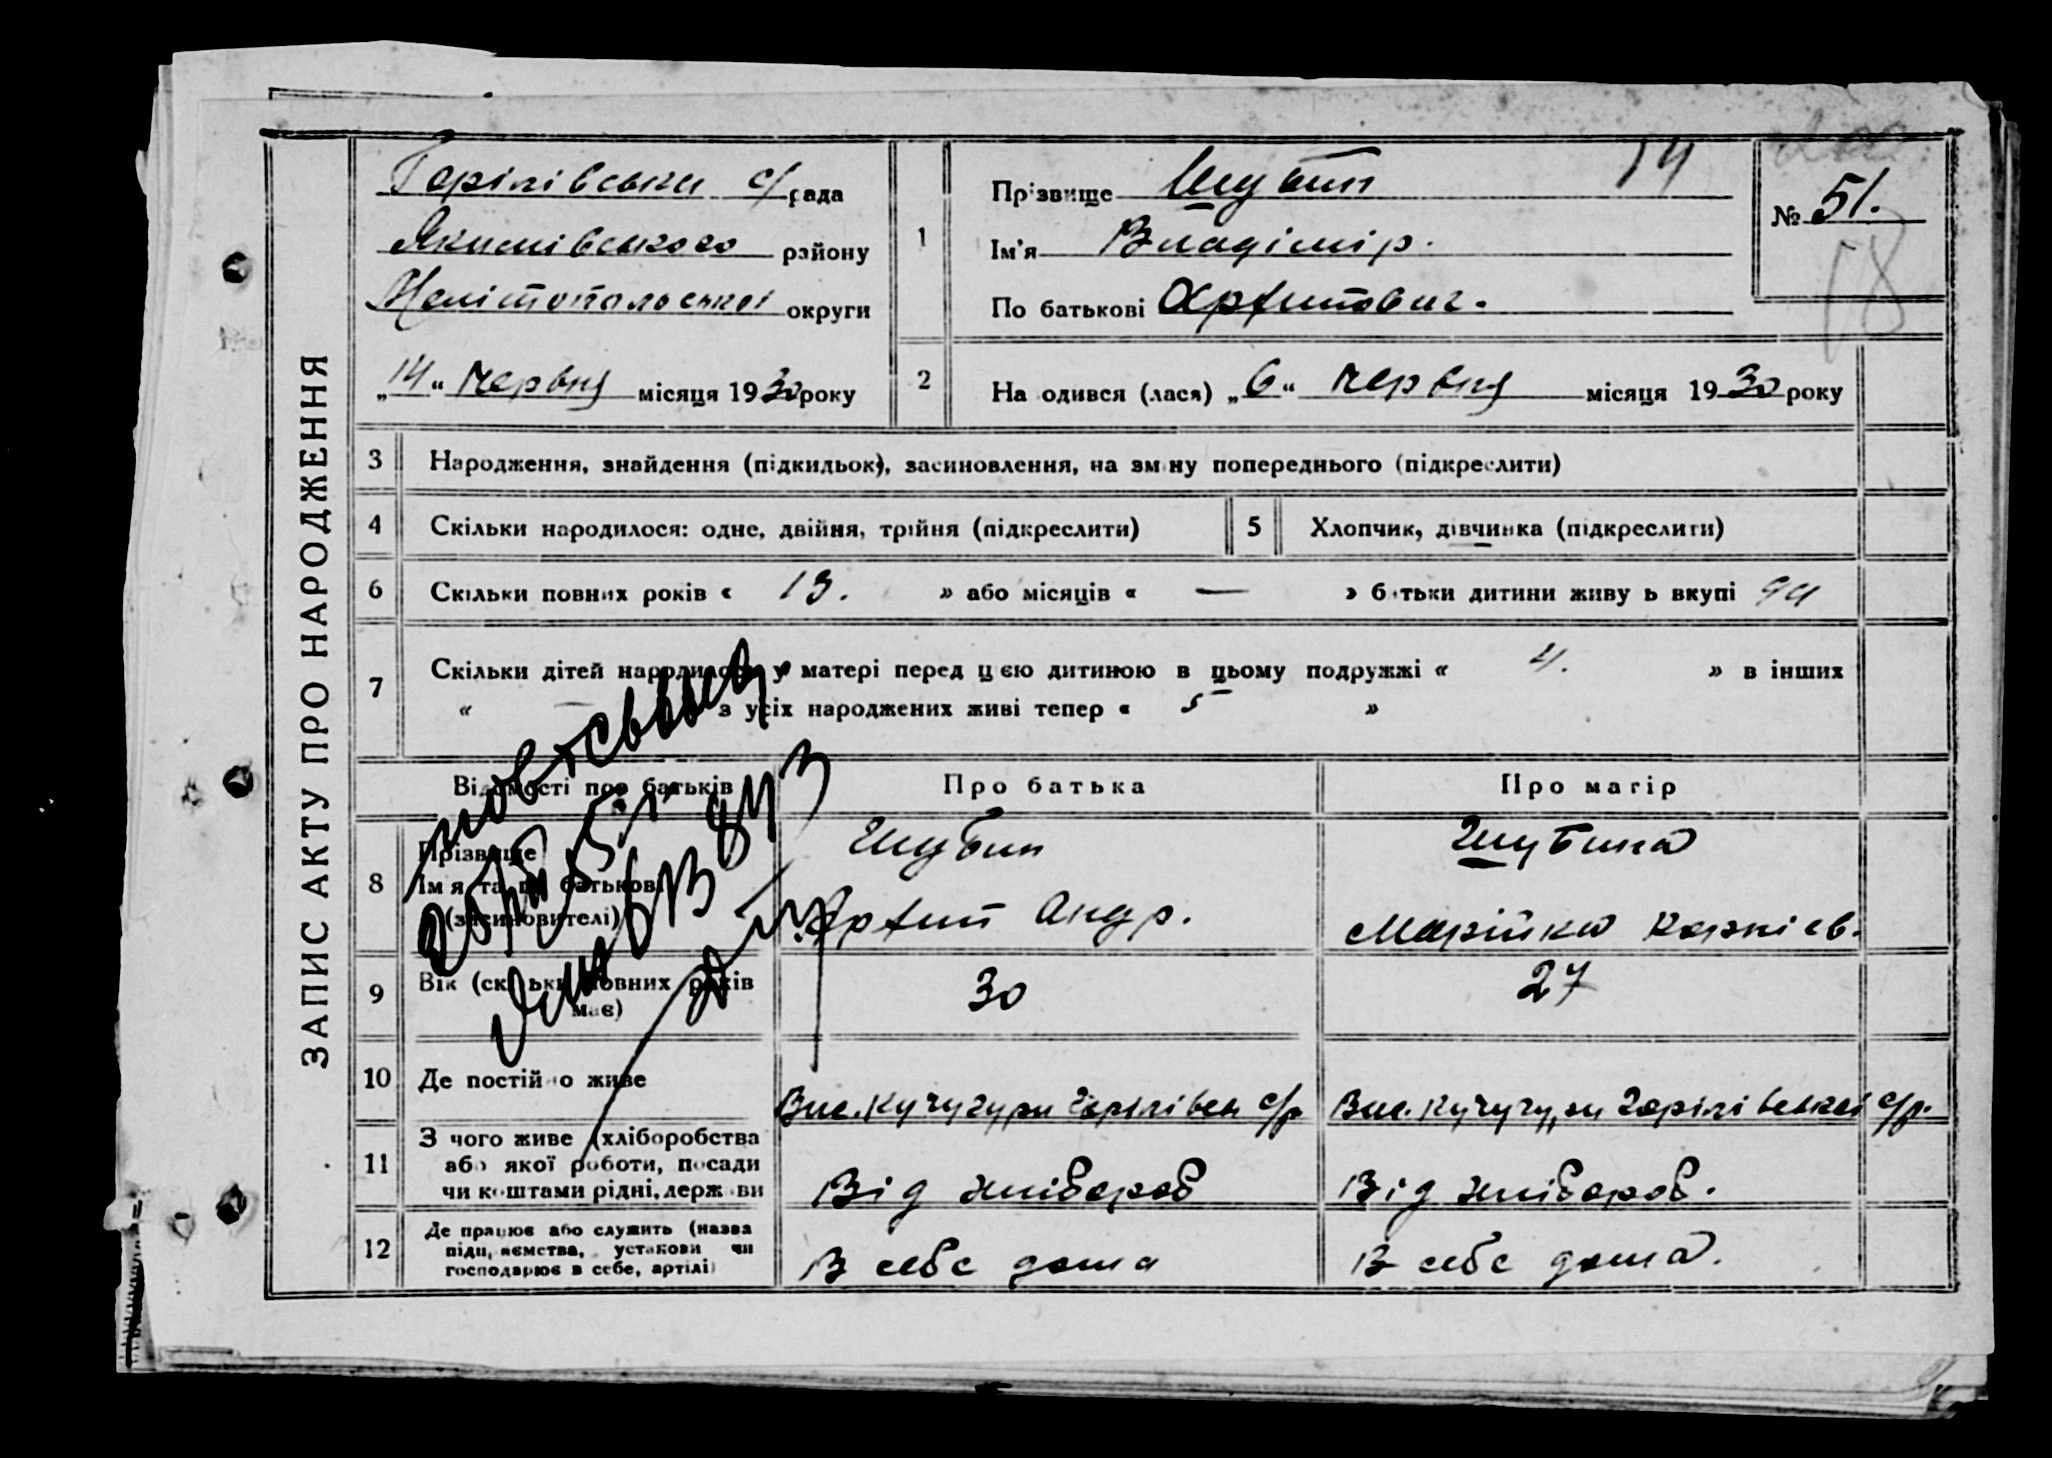 ЗАПИС АКТУ ПРО НАРОДЖЕННЯ
Горілівська с/рада
Якимівського району
Мелітопольської округи
„14“ червня місяця 1930 року
1
Прізвище Шубин 14
Ім'я Владімір.
По батькові Архипович.
№ 51.
58
2
На одився (лася) „6“ червня місяця 1930 року
3 Народження, знайдення (підкидьок), засиновлення, на зміну попереднього (підкреслити)
4 Скільки народилося: одне, двійня, трійня (підкреслити)
5 Хлопчик, дівчинка (підкреслити)
6 Скільки повних років « 13. » або місяців « — » батьки дитини живуть вкупі
7 Скільки дітей народилося у матері перед цією дитиною в цьому подружжі « 4. » в інших
« — з усіх народжених живі тепер « 5 »
Відомості про батьків
Про батька
Про матір
8 Прізвище
Ім'я та по батькові
(засиновителі)
Шубин
Архип Андр.
Шубина
Марійка Корнієв.
9 Вік (скільки повних років має)
30
27
10 Де постійно живе
Вис. Кучугури Горілівськ с/р
Вис. Кучугури Горілівської с/р.
11 З чого живе (хліборобства
або якої роботи, посади
чи коштами рідні, держави
Від хлібороб
Від хлібороб.
12 Де працює або служить (назва
підприємства, установи чи
господарює в себе, артілі)
В себе дома
В себе дома.